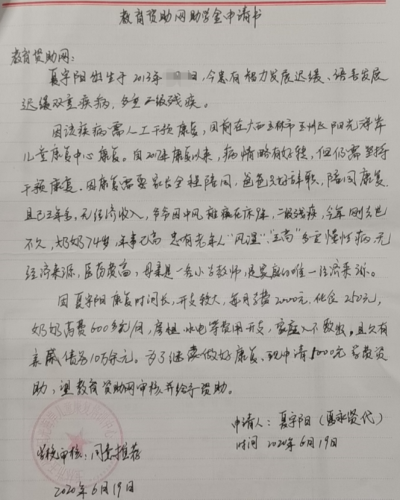 教育资助网助学金申请书
教育资助网:
夏宇阳出生于2013年 月 日,今患有智力发展迟缓、语言发展
迟缓双重疾病,多重二级残疾。
因该疾病需人工干预康复,目前在广西玉林市玉州区阳光彼岸
儿童康复中心康复。自2017年康复以来,病情略有好转,但仍需坚持
干预康复。因康复需要家长全程陪同,爸爸只好辞职,陪同康复
且已三年多,无经济收入,爷爷因中风瘫痪在床9年,二级残疾,今年刚去世
不久,奶奶74岁,年事已高,患有老年人“风湿”、“三高”多重慢性病,无
经济来源,医药费高,母亲是一名小学教师,是家庭的唯一经济来源。
因夏宇阳康复时间长,开支较大,每月学费2000元,伙食250元,
奶奶药费600多元/月,房租水电等费用开支,家庭入不敷出。且欠有
亲戚债务10万余元。为了继续做好康复,现申请5000元学费资
助,望教育资助网审核并给予资助。
申请人:夏宇阳(夏永贤代)
时间 2020年6月19日
学校审核:同意推荐
2020年6月19日